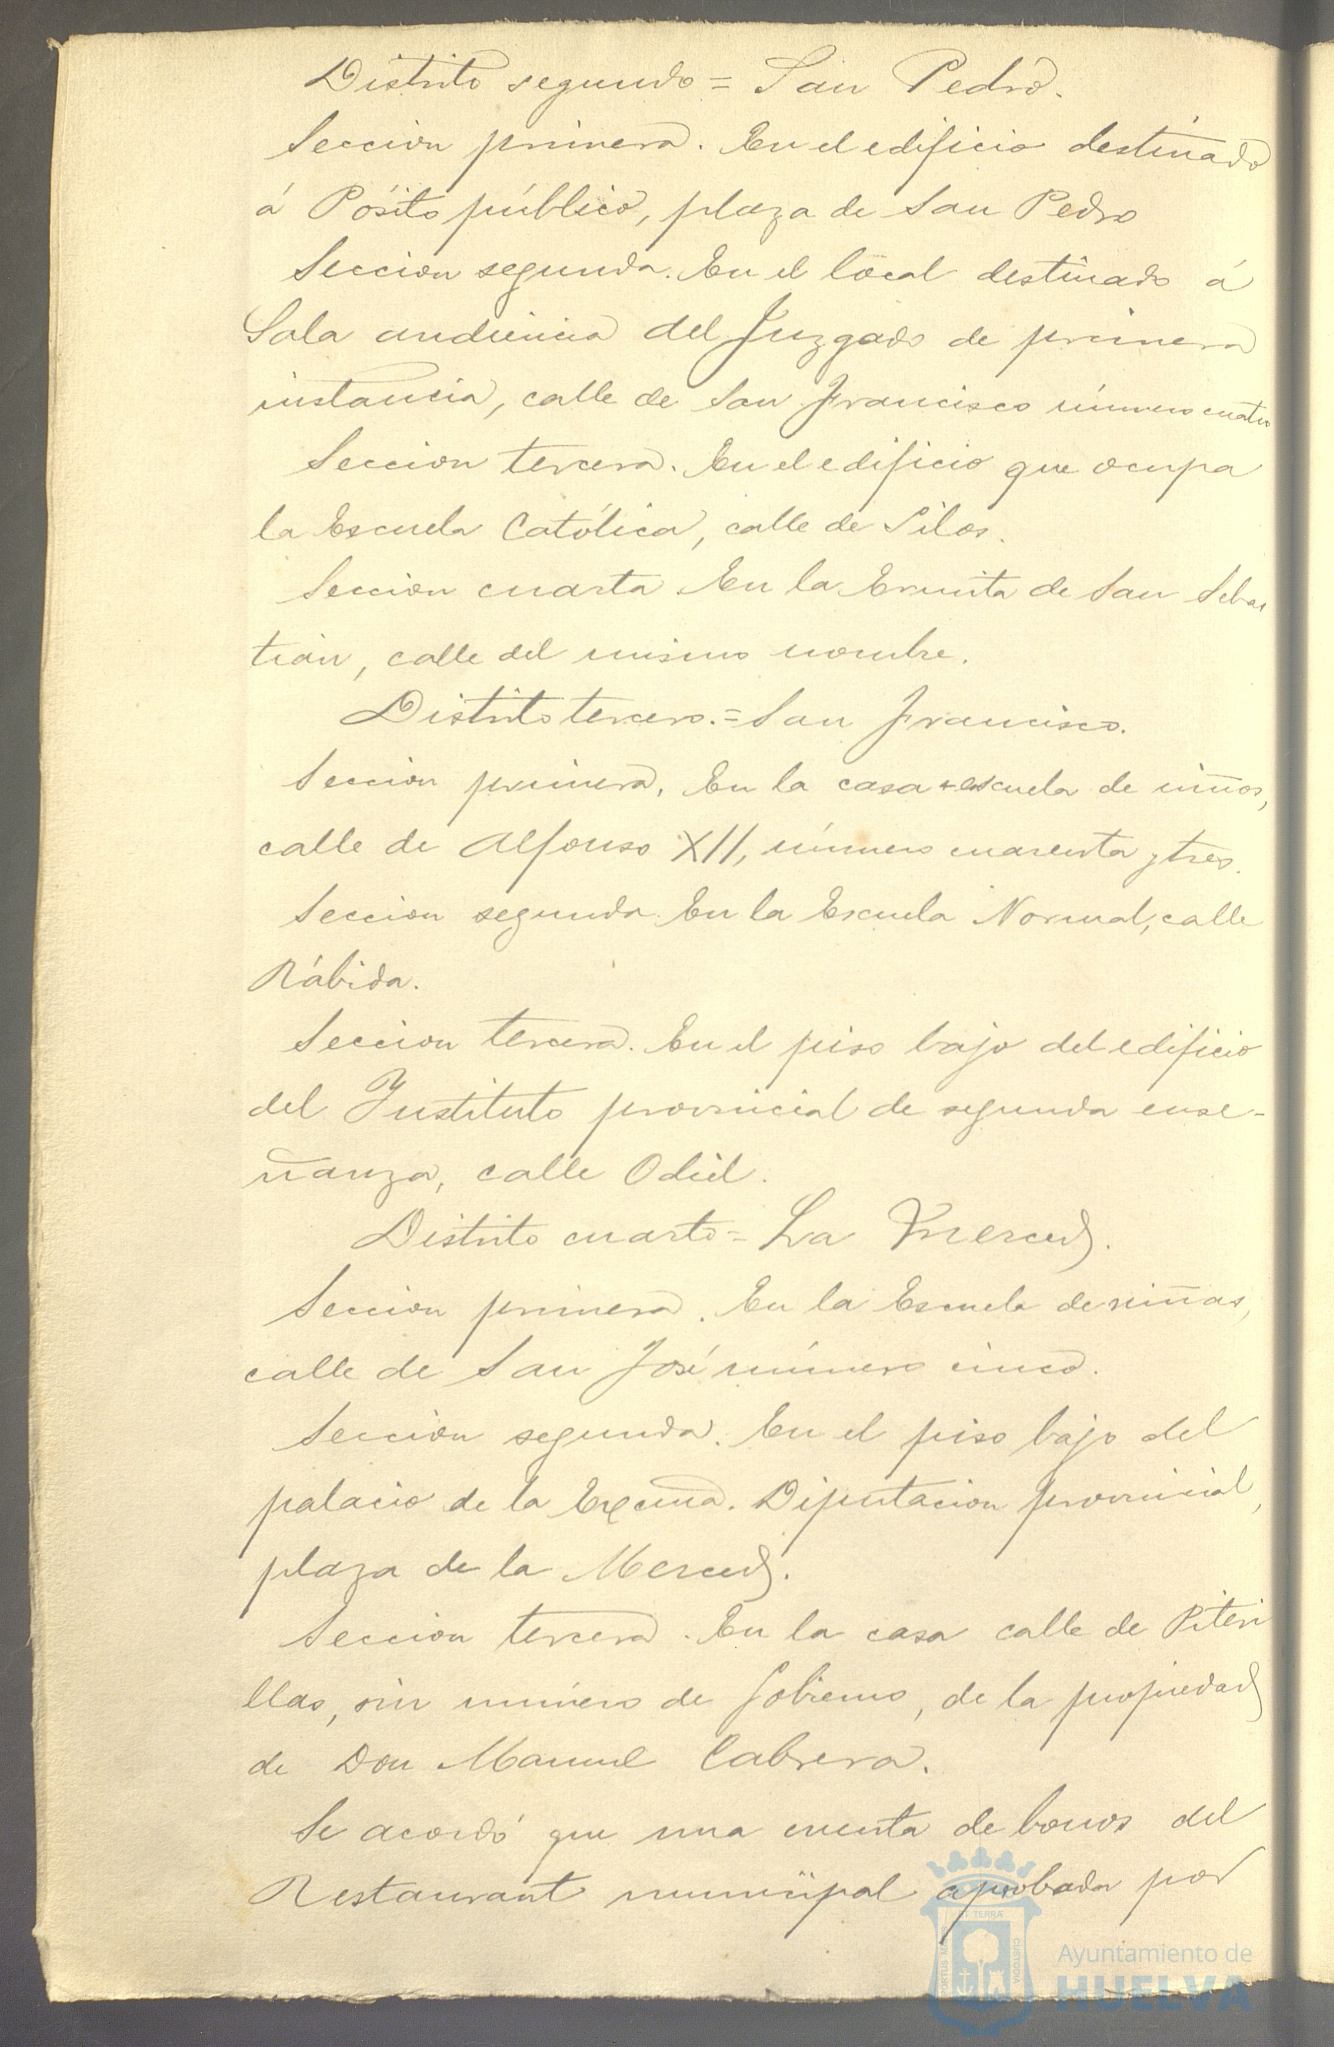 Distrito segundo = San Pedro.
Seccion primera. En el edificio destinado
á Pósito público, plaza de San Pedro
Seccion segunda. En el local destinado á
Sala audiencia del Juzgado de primera
instancia, calle de San Francisco número cuatro
Seccion tercera. En el edificio que ocupa
la Escuela Católica, calle de Silos.
Seccion cuarta En la Ermita de San Sebas
tián, calle del mismo nombre.
Distrito tercero. = San Francisco.
Seccion primera, En la casa escuela de niños,
calle de Alfonso XII, número cuarenta y tres.
Seccion segunda. En la Escuela Normal, calle
Rábida.
Seccion tercera. En el piso bajo del edificio
del Instituto provincial de segunda ense-
ñanza, calle Odiel.
Distrito cuarto = La Merced.
Seccion primera. En la Escuela de niñas,
calle de San José número cinco.
Seccion segunda. En el piso bajo del
palacio de la Excma. Diputacion provincial,
plaza de la Merced.
Seccion tercera. En la casa calle de Piteri
llas, sin número de gobierno, de la propiedad
de Don Manuel Cabrera.
Se acordó que una cuenta de bonos del
Restaurant municipal aprobada por
PORTUS MARIS ET TERRÆ CUSTODIA
Ayuntamiento de
HUELVA